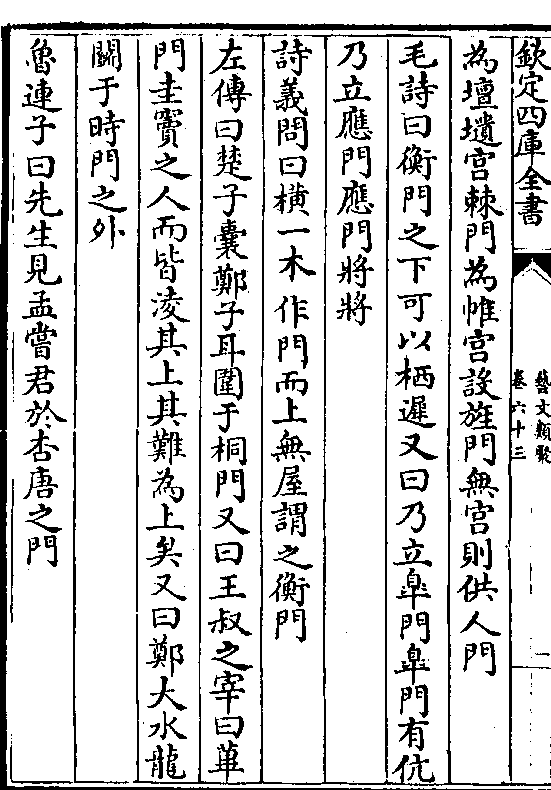 欽定四庫全書
藝文類聚
卷六十三
一
為壇壝宫棘門為帷宫設旌門無宫則供人門
毛詩曰衡門之下可以栖遲又曰乃立臯門臯門有伉
乃立應門應門將將
詩義問曰横一木作門而上無屋謂之衡門
左傳曰楚子囊鄭子耳圍于桐門又曰王叔之宰曰蓽
門圭竇之人而皆淩其上其難為上矣又曰鄭大水龍
鬬于時門之外
魯連子曰先生見孟嘗君於杏唐之門